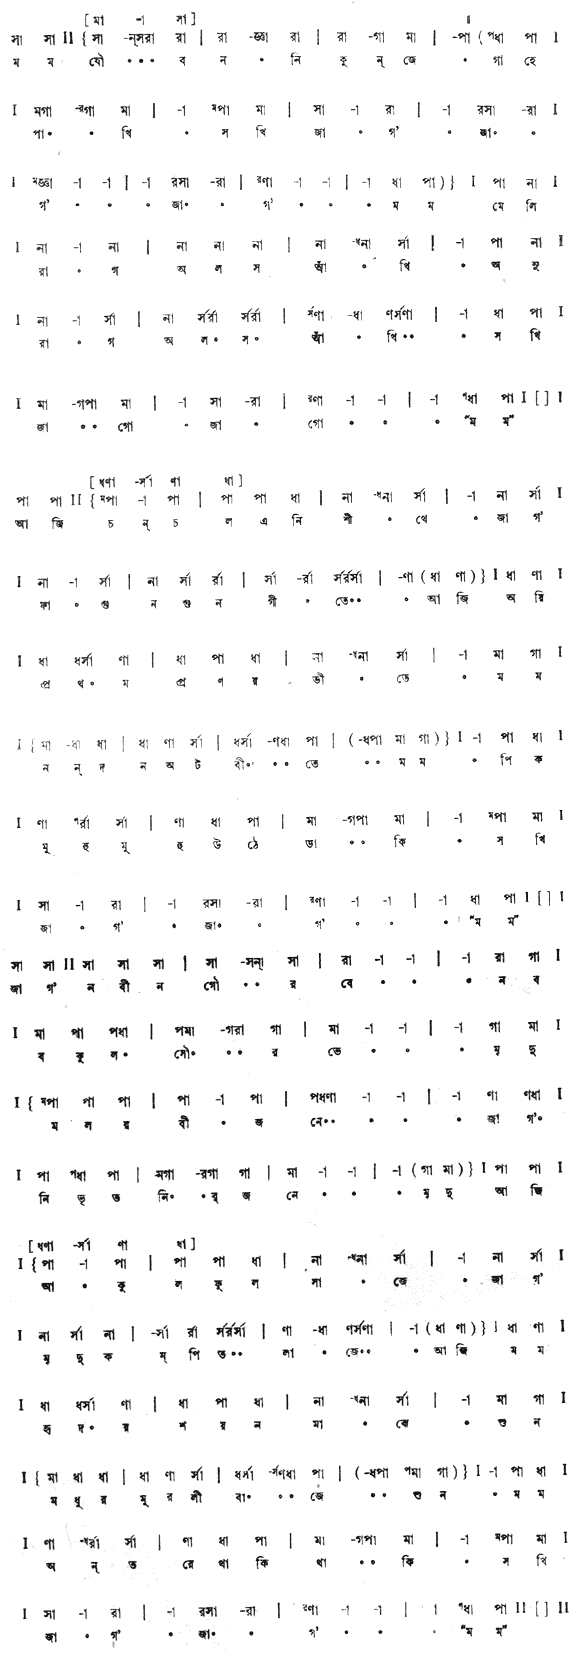 [ মা -া সা ] ॥
সা সা II { সা -ন্‌সরা রা | রা -জ্ঞা রা | রা -গা মা | -পা ( পধা পা I
ম ম যৌ • • • ব ন • নি কু ন্ জে • গা হে
I মগা -রগা মা | -া মপা মা | সা -া রা | -া রসা -রা I
পা • • খি • স খি জা • গ’ • জা • •
I মজ্ঞা -া -া | -া রসা -রা | রণা -া -া | -া ধা পা ) } I পা না I
গ’ • • • জা • • গ’ • • • ম ম মে লি
I না -া না | না না না | না -ধনা র্সা | -া পা না I
রা • গ অ ল স আঁ • খি • অ নু
I না -া র্সা | না র্সর্রা র্সর্রা | র্সণা -ধা ণর্সণা | -া ধা পা I
রা • গ অ ল • স • আঁ • খি • • • স খি
I মা -গপা মা | -া সা -রা | রণা -া -া | -া পধা পা I [ ] I
জা • • গো • জা • গো • • • “ম ম”
[ ধণা -র্সা ণা ধা ]
পা পা II { মপা -া পা | পা পা ধা | না -ধনা র্সা | -া না র্সা I
আ জি চ ন্ চ ল এ নি শী • থে • জা গ’
I না -া র্সা | না র্সা র্রা | র্সা -র্রা র্সর্রর্সা | -ণা ( ধা ণা ) } I ধা ণা I
ফা • গু ন গু ন গী • তে • • • আ জি অ য়ি
I ধা ধর্সা ণা | ধা পা ধা | না -ধনা র্সা | -া মা গা I
প্র থ • ম প্র ণ য় ভী • তে • ম ম
I { মা -ধা ধা | ধা ণা র্সা | ধর্সা -ণধা পা | ( -ধপা মা গা ) } I -া পা ধা I
ন ন্ দ ন অ ট বী • • • তে • • ম ম • পি ক
I ণা র্রা র্সা | ণা ধা পা | মা -গপা মা | -া মপা মা I
মু হু মু হু উ ঠে ডা • • কি • স খি
I সা -া রা | -া রসা -রা | রণা -া -া | -া ধা পা I [ ] I
জা • গ’ • জা • • গ’ • • • “ম ম”
সা সা II সা সা সা | সা -সন্‌ সা | রা -া -া | -া রা গা I
জা গ’ ন বী ন গৌ • • র বে • • • ন ব
I মা পা পধা | পমা -গরা গা | মা -া -া | -া গা মা I
ব কু ল • সৌ • • • র ভে • • • মৃ দু
I { মপা পা পা | পা -া পা | পধণা -া -া | -া ণা ণধা I
ম ল য় বী • জ নে • • • • • জা গ’ •
I পা পধা পা | -মগা -রগা গা | মা -া -া | -া ( গা মা ) } I পা পা I
নি ভৃ ত নি • • র্ জ নে • • • মৃ দু আ জি
[ ধণা -র্সা ণা ধা ]
I { পা -া পা | পা পা ধা | না -ধনা র্সা | -া না র্সা I
আ • কু ল ফু ল সা • জে • জা গ’
I না র্সা না | -র্সা র্রা র্সর্রর্সা | ণা -ধা ণর্সণা | -া ( ধা ণা ) } I ধা ণা I
মৃ দু ক ম্ পি ত • • লা • জে • • • আ জি ম ম
I ধা ধর্সা ণা | ধা পা ধা | না -ধনা র্সা | -া মা গা I
হৃ দ • য় শ য় ন মা • ঝে • শু ন
I { মা ধা ধা | ধা ণা র্সা | ধর্সা -র্সণধা পা | ( -ধপা পমা গা ) } I -া পা ধা I
ম ধু র মু র লী বা • • • জে • • শু ন • ম ম
I ণা -র্রা র্সা | ণা ধা পা | মা -গপা মা | -া মপা মা I
অ ন্ ত রে থা কি থা • • কি • স খি
I সা -া রা | -া রসা -রা | রণা -া -া | া পধা পা II [ ] II
জা • গ’ • জা • • গ’ • • • “ম ম”